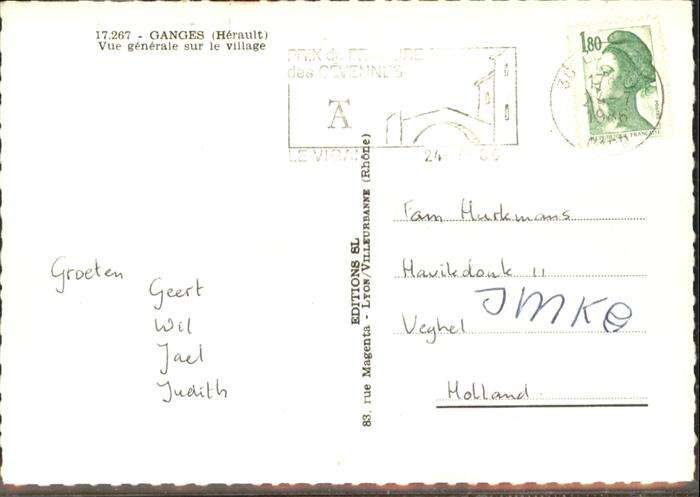 17.267 - GANGES (Hérault)
Vue générale sur le village
PRIX de PEINTURE
des CÉVENNES
LE VIGAN
1,80
1986
Groeten
Geert
Wil
Jael
Judith
EDITIONS SL
83, rue Magenta - LYON/VILLEURBANNE (Rhône)
Fam Hurkmans
Havikdonk 11
Veghel
Holland